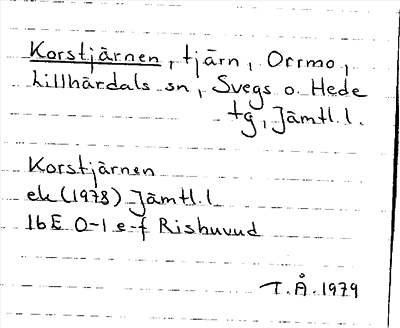 Korstjärnen, tjärn, Orrmo,
Lillhärdals sn, Svegs o. Hede
tg, Jämtl.l.
Korstjärnen
ek (1978) Jämtl.l
16E 0-1 e-f Rishuvud
T.Å. 1979